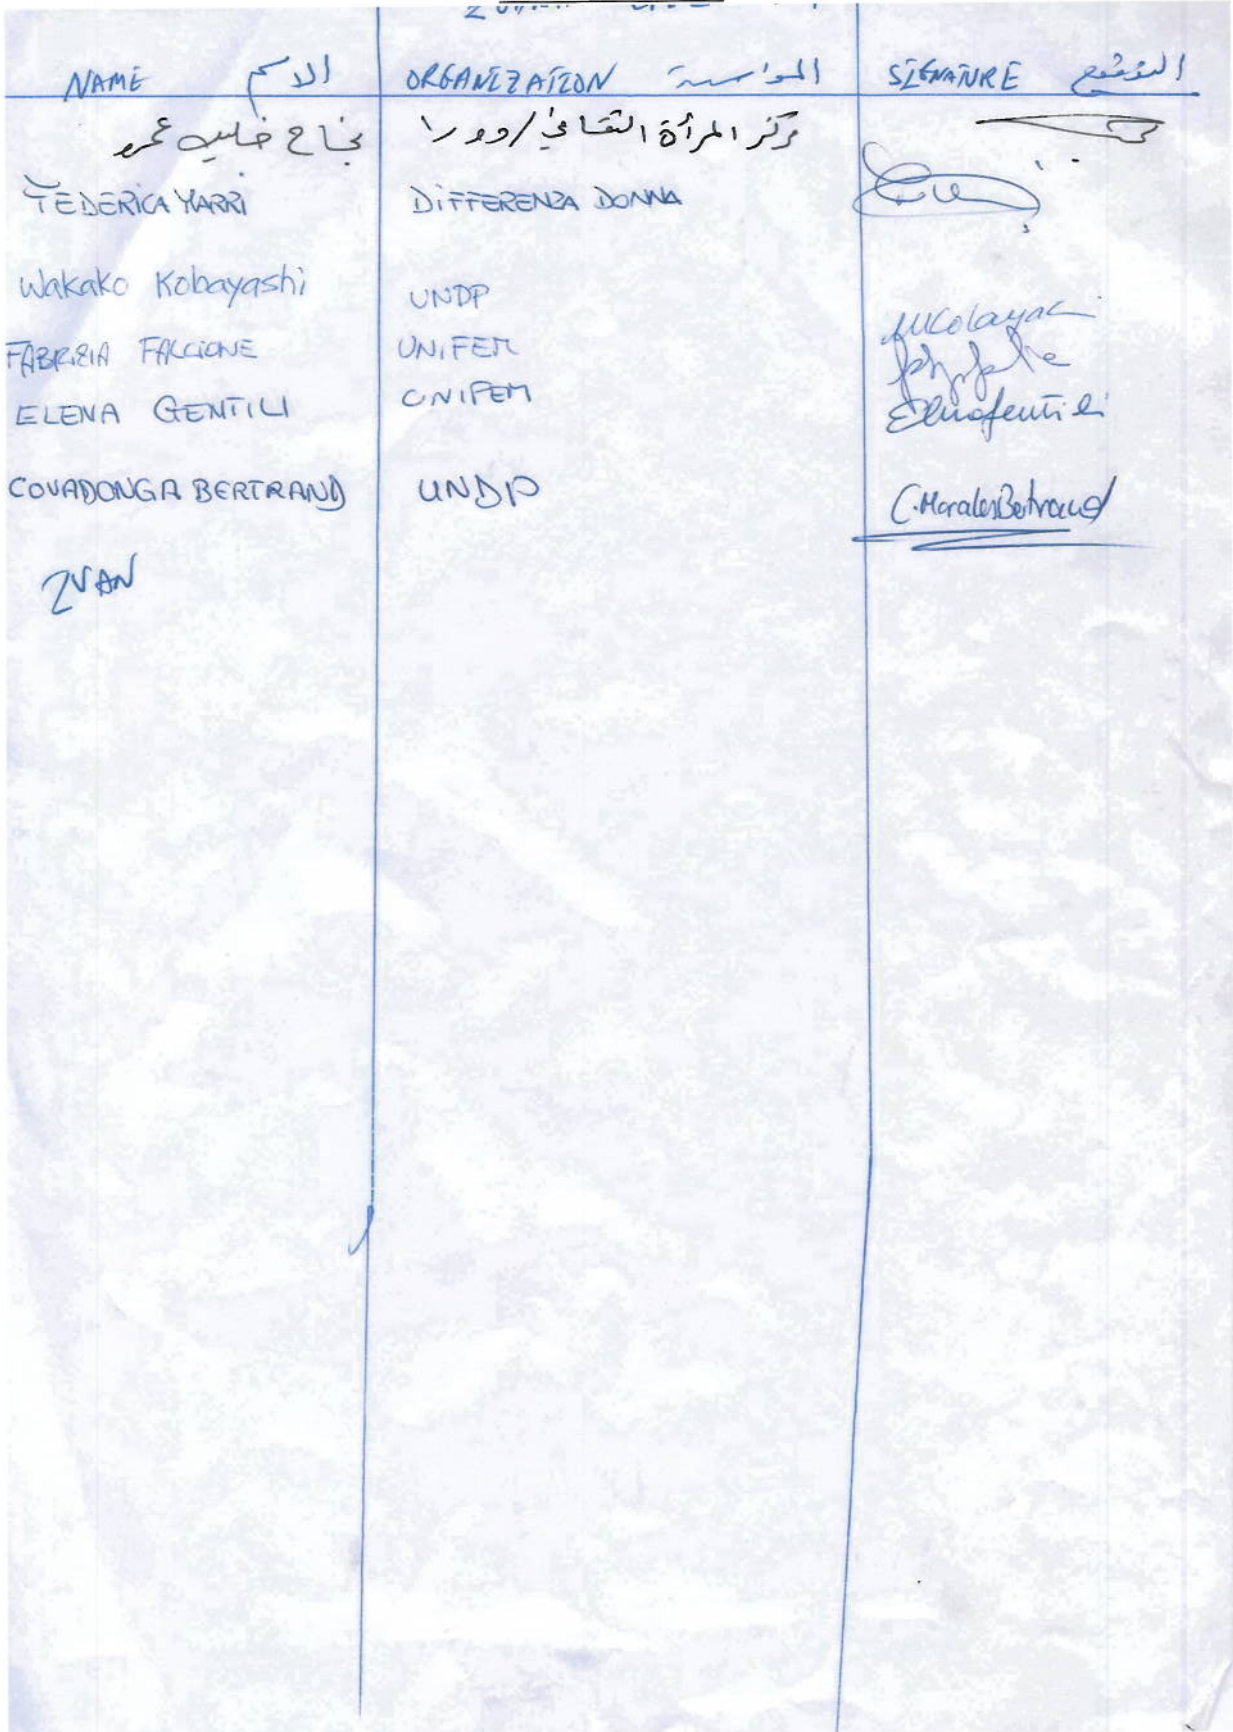 NAME الاسم ORGANIZATION المؤاسسة SIGNATURE التوقيع
نجاح خليل عمرو مركز المرأة الثقافي/دورا
FEDERICA MARRI DIFFERENZA DONNA
Wakako Kobayashi UNDP
FABRIZIA FALCIONE UNIFEM
ELENA GENTILI UNIFEM Elena Gentili
COVADONGA BERTRAND UNDP C. Morales Bertrand
IVAN